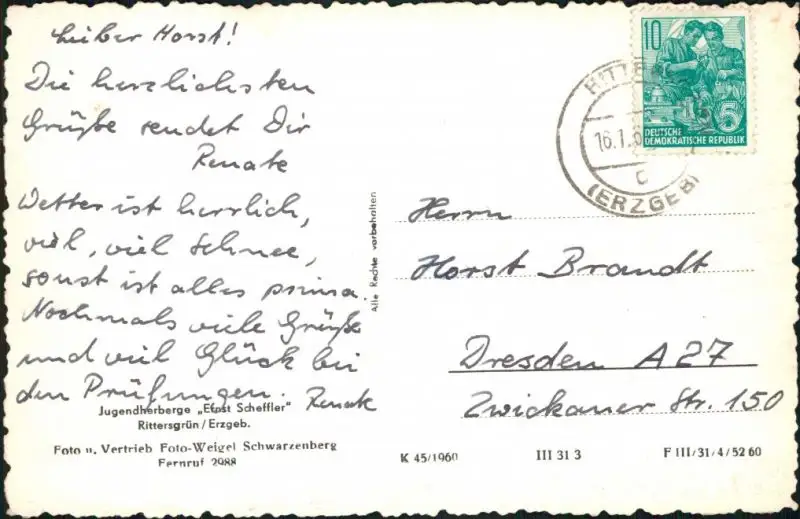 Lieber Horst!
Die herzlichsten
Grüße sendet Dir
Renate
Wetter ist herrlich,
viel, viel Schnee,
sonst ist alles prima.
Nochmals viele Grüße
und viel Glück bei
den Prüfungen. Renate
Jugendherberge „Ernst Scheffler"
Rittersgrün/Erzgeb.
Foto u. Vertrieb Foto-Weigel Schwarzenberg
Fernruf 2988
Alle Rechte vorbehalten
10
DEUTSCHE
DEMOKRATISCHE REPUBLIK
16.1.6
c
(ERZGEB)
Herrn
Horst Brandt
Dresden A 27
Zwickauer Str. 150
K 45/1960
III 31 3
F III/31/4/52 60